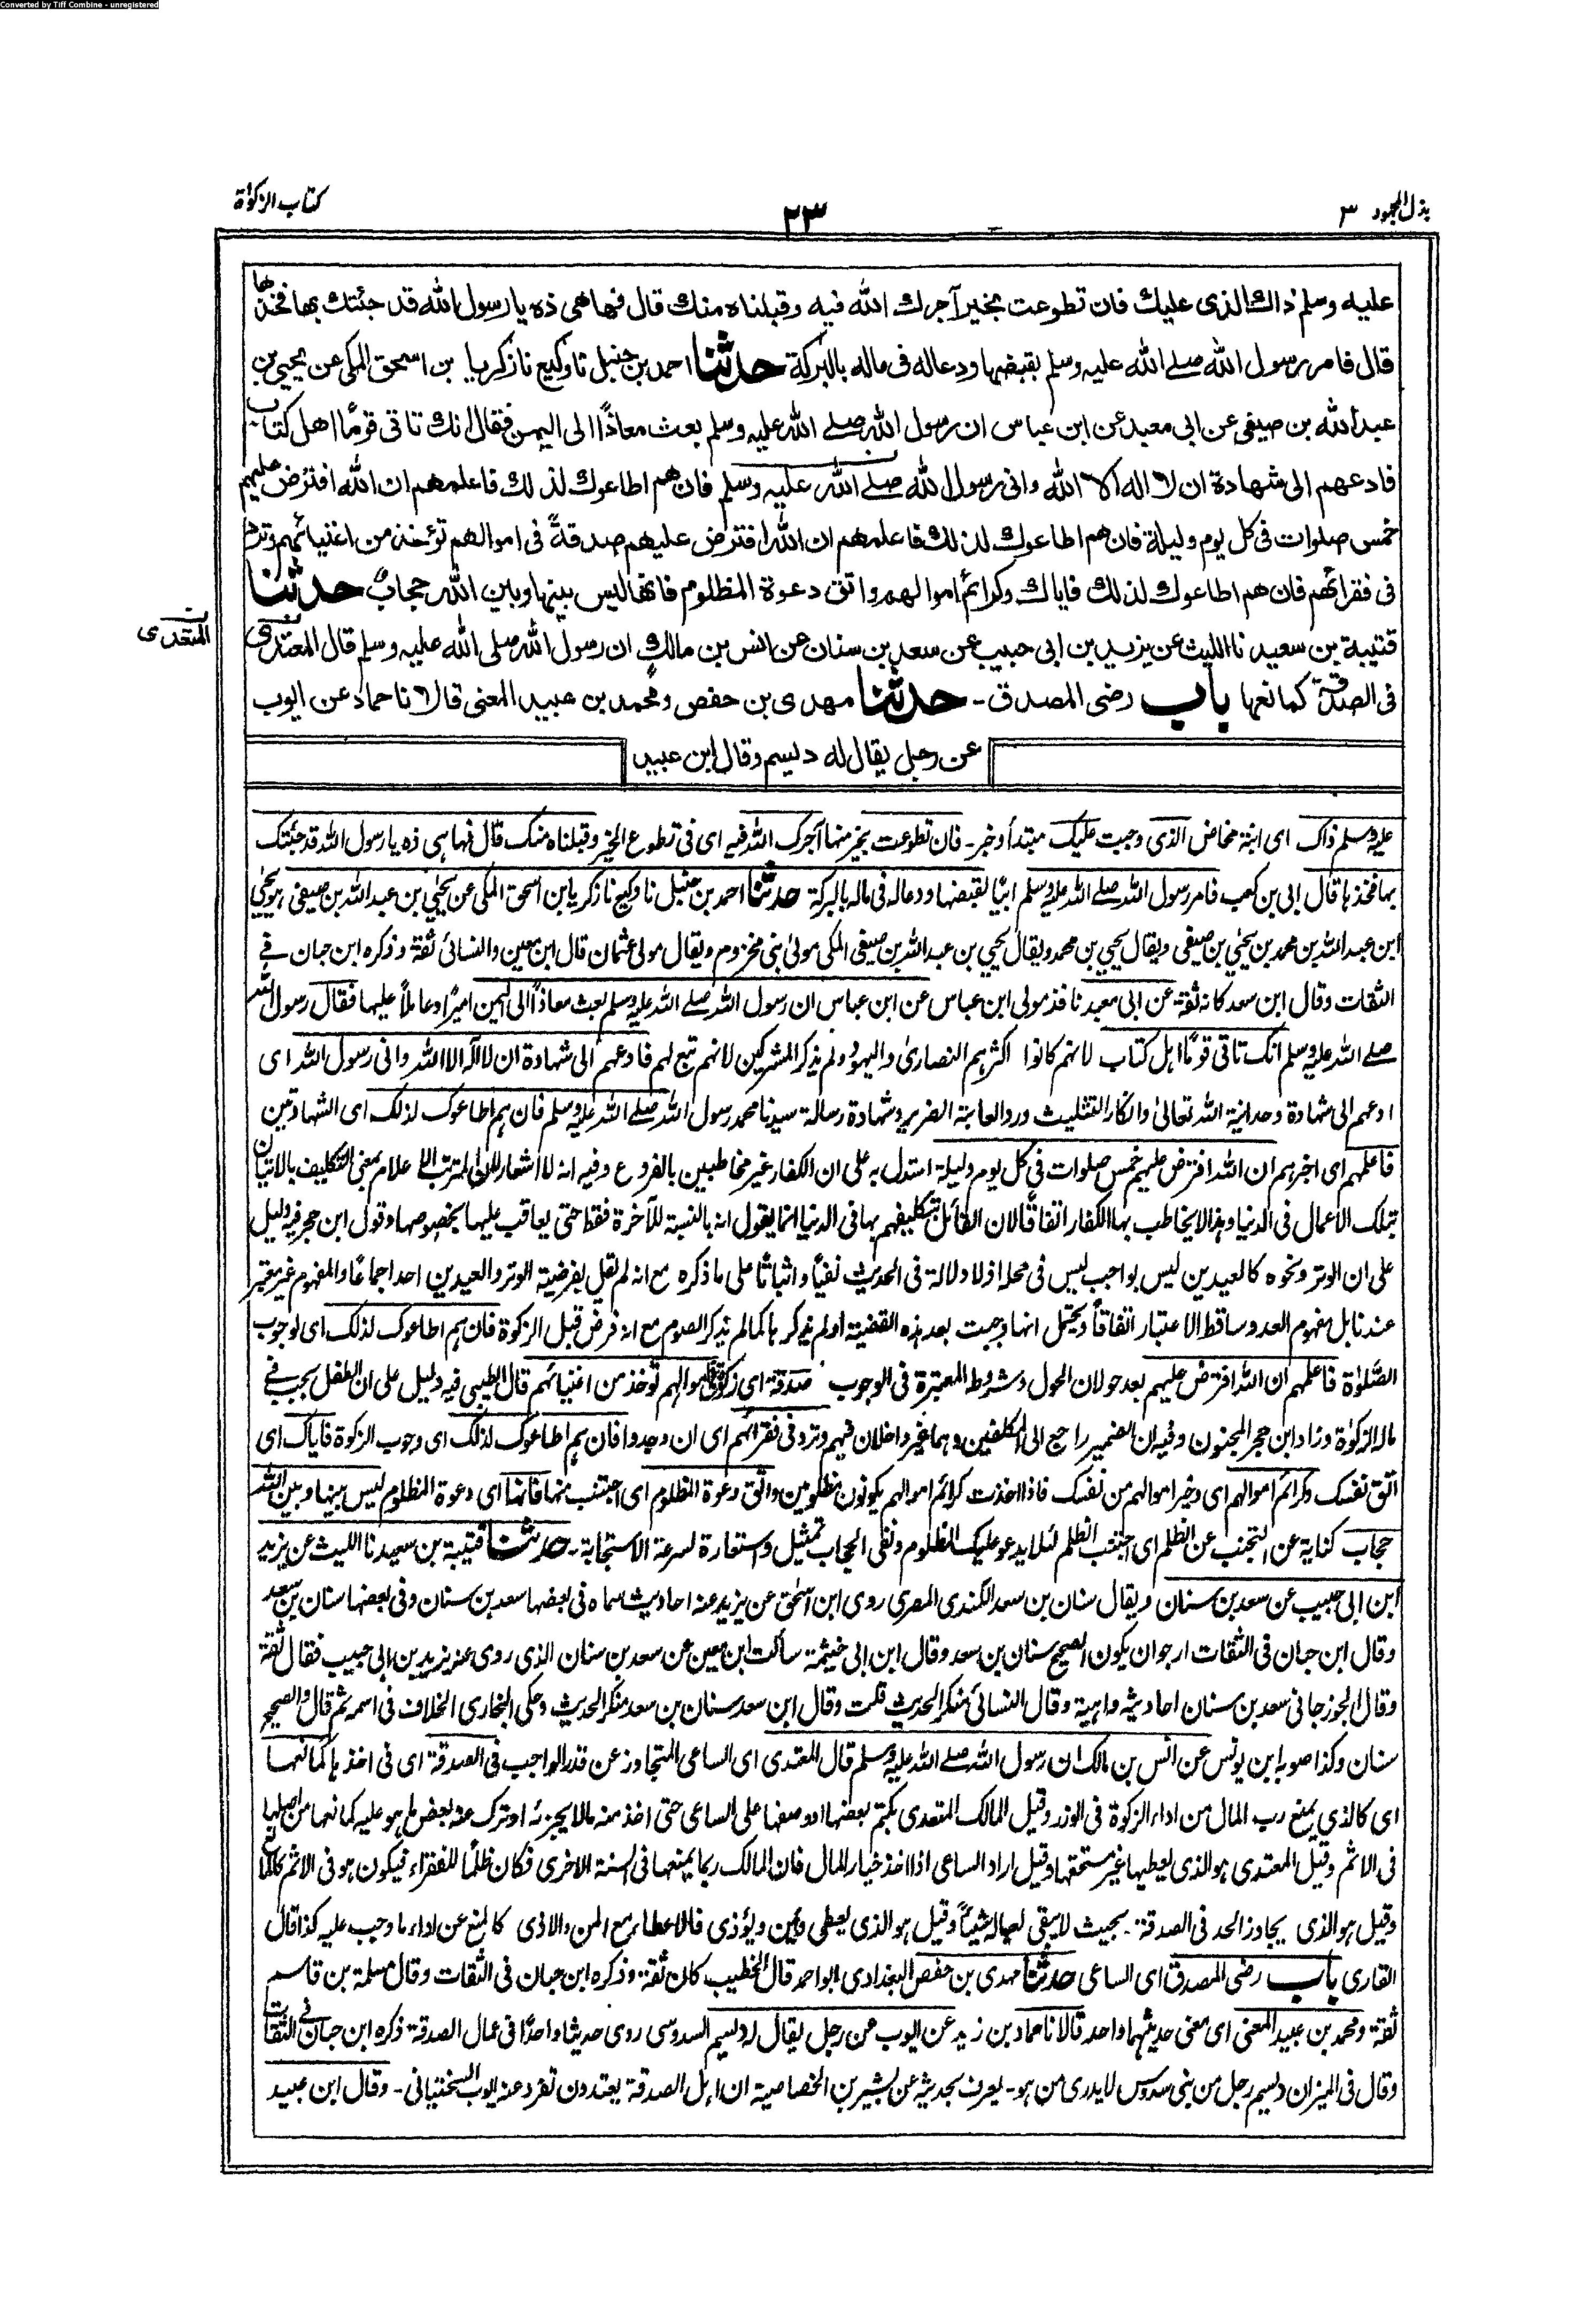 Converted by Tiff Combine - unregistered
بذل المجهود ٣
٢٣
كتاب الزكوٰة
عليه وسلم ذاك الذى عليك فان تطوعت بخير آجرك الله فيه وقبلناه منك قال فها هى ذه يا رسول الله قد جئتك بها فخذها
قال فامر رسول الله صلے الله عليه وسلم بقبضها ودعا له فى ماله بالبركة حدثنا احمد بن حنبل نا وكيع نا زكريا بن اسحق المكى عن يحيى بن
عبد الله بن صيفى عن ابى معبد عن ابن عباس ان رسول الله صلے الله عليه وسلم بعث معاذًا الى اليمن فقال انك تاتى قومًا اهل كتاب
فادعهم الى شهادة ان لا اله الا الله وانى رسول الله صلے الله عليه وسلم فان هم اطاعوك لذلك فاعلمهم ان الله افترض عليهم
خمس صلوات فى كل يوم وليلة فان هم اطاعوك لذلك فاعلمهم ان الله افترض عليهم صدقةً فى اموالهم تؤخذ من اغنيائهم وترد
فى فقرائهم فان هم اطاعوك لذلك فاياك وكرائم اموالهم واتق دعوة المظلوم فانها ليس بينها وبين الله حجابٌ حدثنا
قتيبة بن سعيد نا الليث عن يزيد بن ابى حبيب عن سعد بن سنان عن انس بن مالك ان رسول الله صلى الله عليه وسلم قال المعتدى
المتعدى
فى الصدقة كمانعها باب رضى المصدق - حدثنا مهدى بن حفص ومحمد بن عبيد المعنى قالا نا حماد عن ايوب
عن رجل يقال له ديسم وقال ابن عبيد
عليه وسلم ذاك اى ابنة مخاض الذى وجبت عليك مبتدأ وخبر - فان تطوعت بخير منها آجرك الله فيه اى فى تطوع الخير وقبلناه منك قال فها هى ذه يا رسول الله قد جئتك
بها فخذها قال ابى بن كعب فامر رسول الله صلے الله عليه وسلم ابيًّا بقبضها ودعا له فى ماله بالبركة حدثنا احمد بن حنبل نا وكيع نا زكريا بن اسحق المكى عن يحيىٰ بن عبد الله بن صيفى هو يحيىٰ
ابن عبد الله بن محمد بن يحيىٰ بن صيفى ويقال يحيى بن محمد ويقال يحيى بن عبد الله بن صيفى المكى مولىٰ بنى مخزوم ويقال مولى عثمان قال ابن معين والنسائى ثقة وذكره ابن حبان فے
الثقات وقال ابن سعد كان ثقة عن ابى معبد نافذ مولى ابن عباس عن ابن عباس ان رسول الله صلے الله عليه وسلم بعث معاذًا الى اليمن اميرًا وعاملاً عليها فقال رسول الله
صلے الله عليه وسلم انك تاتى قومًا اهل كتاب لانهم كانوا اكثرهم النصارىٰ واليهود ولم يذكر المشركين لانهم تبع لهم فادعهم الى شهادة ان لا الٰه الا الله وانى رسول الله اى
ادعهم الى شهادة وحدانية الله تعالىٰ وانكار التثليث ورد العابنة الضرير وشهادة رسالة سيدنا محمد رسول الله صلے الله عليه وسلم فان هم اطاعوك لذلك اى الشهادتين
فاعلمهم اى اخبرهم ان الله افترض عليهم خمس صلوات فى كل يوم وليلة استدل به على ان الكفار غير مخاطبين بالفروع وفيه انه لا اشعار للاولى لترتب الاعلام بمعنى التكليف بالاتيان
بتلك الاعمال فى الدنيا وهذا لا يخاطب بها الكفار اتفاقًا لان القائل بتكليفهم بها فى الدنيا انما يقول انه بالنسبة للآخرة فقط حتى يعاقب عليها بخصوصها وقول ابن حجر فيه دليل
على ان الوتر ونحوه كالعيدين ليس بواجب ليس فى محله اذ لا دلالة فى الحديث نفيًا واثباتًا على ما ذكره مع انه لم يقل بفرضية الوتر والعيدين احد اجماعًا والمفهوم غير معتبر
عندنا بل مفهوم العدد ساقط الاعتبار اتفاقًا ويحتمل انها وجبت بعد هذه القضية او لم يذكرها كما لم يذكر الصوم مع انه فرض قبل الزكوة فان هم اطاعوك لذلك اى لوجوب
الصلوٰة فاعلمهم ان الله افترض عليهم بعد حولان الحول وشروط المعتبرة فى الوجوب صدقة اى زكوة فى اموالهم تؤخذ من اغنيائهم قال الطيبى فيه دليل على ان الطفل يجب فے
ماله الزكوٰة وزاد ابن حجر المجنون وفيه ان الضمير راجع الى المكلفين وهما غير داخلان فيهم وترد فى فقرائهم اى ان وجدوا فان هم اطاعوك لذلك اى وجوب الزكوة فاياك اى
اتق نفسك وكرائم اموالهم اى وخير اموالهم من نفسك فاذا اخذت كرائم اموالهم يكونون مظلومين واتق دعوة المظلوم اى اجتنب منها فانها اى دعوة المظلوم ليس بينها وبين الله
حجاب كناية عن التجنب عن الظلم اى اجتنب الظلم لئلا يدعو عليك المظلوم ونفى الحجاب تمثيل واستعارة لسرعة الاستجابة - حدثنا قتيبة بن سعيد نا الليث عن يزيد
ابن ابى حبيب عن سعد بن سنان ويقال سنان بن سعد الكندى المصرى روى ابن اسحٰق عن يزيد عنه احاديث سماه فى بعضها سعد بن سنان وفى بعضها سنان بن سعد
وقال ابن حبان فى الثقات ارجو ان يكون الصحيح سنان بن سعد وقال ابن ابى خيثمة سألت ابن معين عن سعد بن سنان الذى روى عنه يزيد بن ابى حبيب فقال ثقة
وقال الجوزجانى سعد بن سنان احاديثه واهية وقال النسائى منكر الحديث قلت وقال ابن سعد سنان بن سعد منكر الحديث وحكى البخارى الخلاف فى اسمه ثم قال والصحيح
سنان وكذا صوبه ابن يونس عن انس بن مالك ان رسول الله صلے الله عليه وسلم قال المعتدى اى الساعى المتجاوز عن قدر الواجب فى الصدقة اى فى اخذها كمانعها
اى كالذى يمنع رب المال من اداء الزكوة فى الوزر وقيل المالك المتعدى بكتم بعضها او وصفها على الساعى حتى اخذ منه مالا يجزئه او ترك عنه بعض ما هو عليه كمانعها من اصلها
فى الاثم وقيل المعتدى هو الذى يعطيها غير مستحقها وقيل اراد الساعى اذا اخذ خيار المال فان المالك ربما يمنعها فى السنة الاخرى فكان ظلمًا للفقراء فيكون هو فى الاثم كالمانع
وقيل هو الذى يجاوز الحد فى الصدقة - بحيث لا يبقى لعياله شيئًا وقيل هو الذى يعطى ويمن ويؤذى فالاعطاء مع المن والاذى كالمنع عن اداء ما وجب عليه كذا قال
القارى باب رضى المصدق اى الساعى حدثنا مهدى بن حفص البغدادى ابو احمد قال الخطيب كان ثقة وذكره ابن حبان فى الثقات وقال مسلمة بن قاسم
ثقة ومحمد بن عبيد المعنى اى معنى حديثهما واحد قالا نا حماد بن زيد عن ايوب عن رجل يقال له ديسم السدوسى روى حديثا واحدًا فى عمال الصدقة ذكره ابن حبان فے الثقات
وقال فى الميزان ديسم رجل من بنى سدوس لا يدرى من هو - يعرف بحديثه عن بشير بن الخصاصية ان اهل الصدقة يعتدون تفرد عنه ايوب السختيانى - وقال ابن عبيد